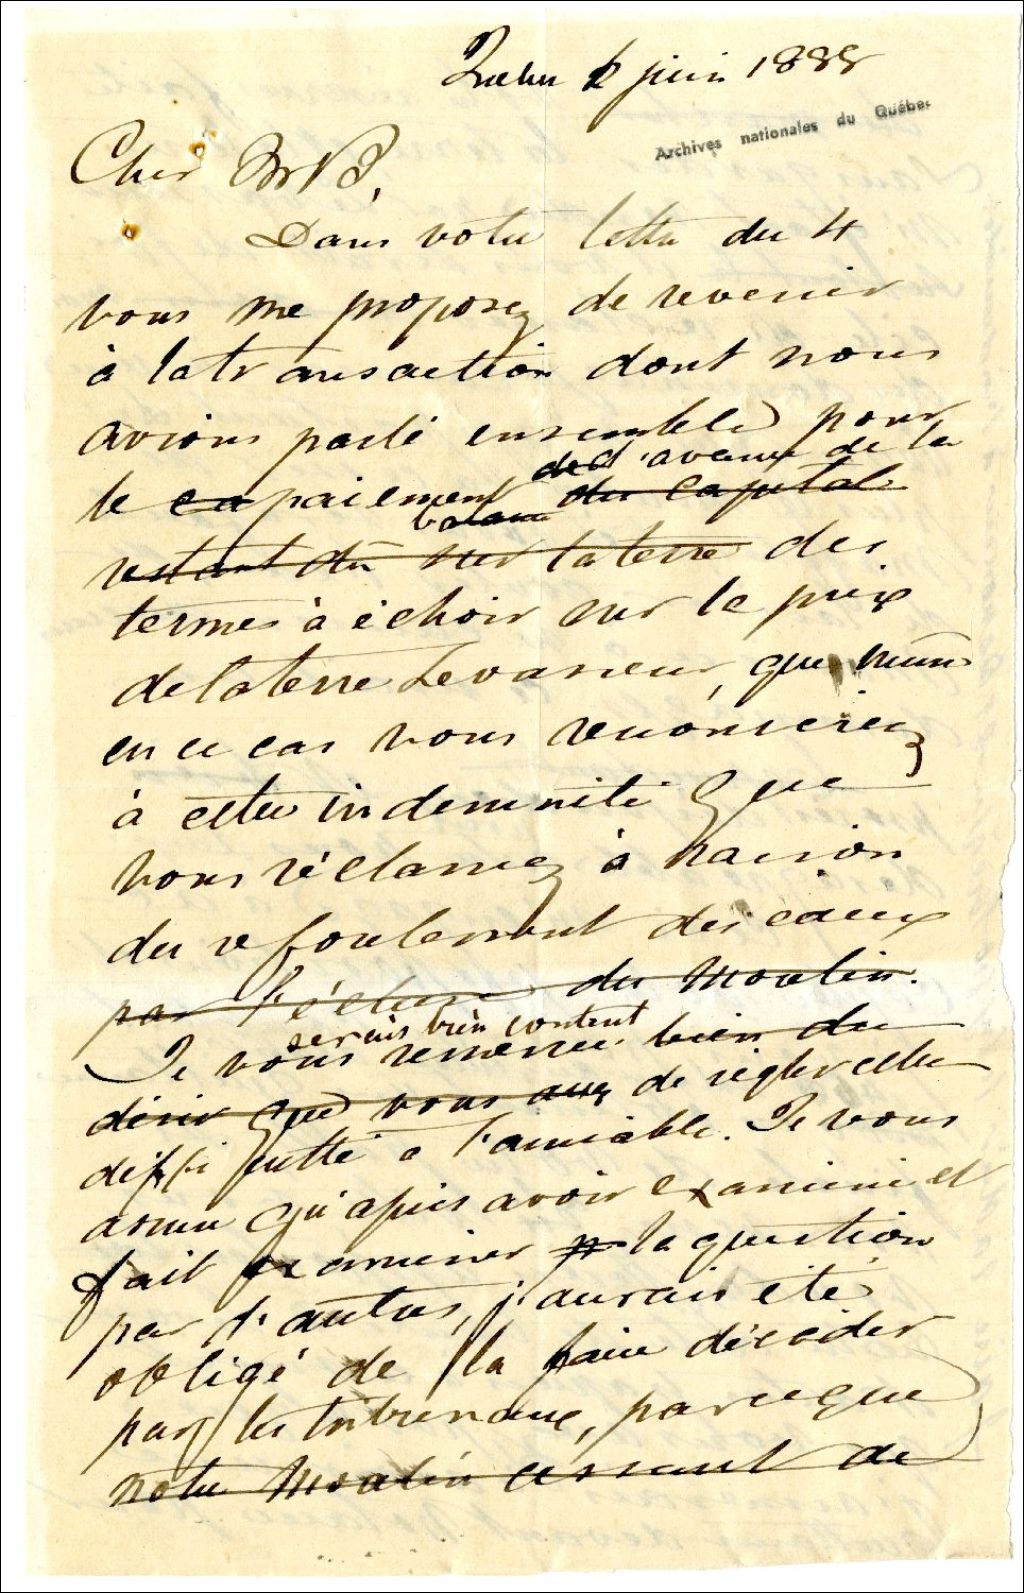 Québec 6 juin 1888
Archives nationales du Québec
Cher Mr B,
Dans votre lettre du 4
vous me proposez de revenir
à la transaction dont nous
avions parlé ensemble pour
de la
le ca paiement du capital
balance
restant dû sur la terre des
termes à échoir sur le prix
de la terre Levasseur, que
en ce cas vous renonceriez
à cette indemnité que
vous réclamez à raison
du refoulement des eaux
par l'écluse du moulin.
serais bien content
Je vous remercie bien du
désir que vous avez de régler cette
difficulté à l'amiable. Je vous
assure qu'après avoir examiné et
fait examiner la question
par d'autres, j'aurais été
obligé de la faire décider
par les tribunaux, parceque
votre moulin cessant de